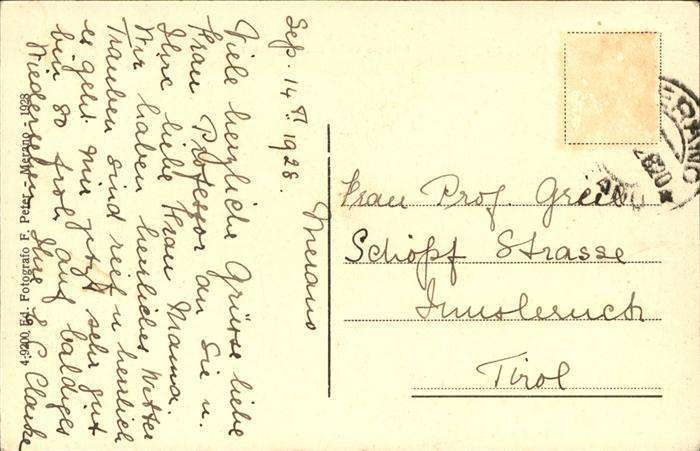 Sep. 14 T. 1928.
Merano
Viele herzliche Grüsse liebe
Frau Professor an Sie u.
Ihre liebe Frau Mama.
Wir haben herrliches Wetter
Trauben sind reif u herrlich
es geht mir jetzt sehr gut
bin so froh auf baldiges
Wiedersehen Ihre S C Clarke
4-9200 Ed. Fotografo F. Peter - Merano - 1928
Frau Prof.
Schöpf Strasse
Innsbruck
Tirol